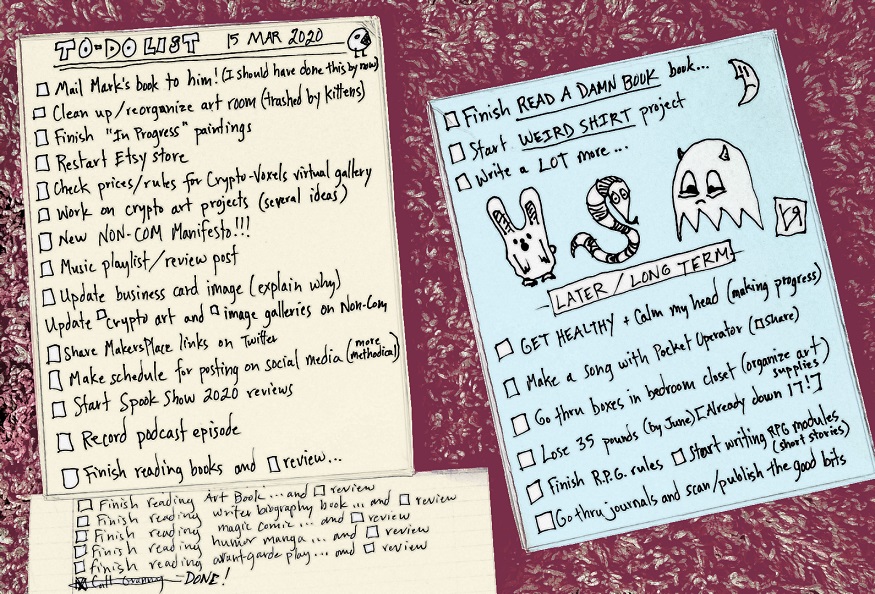 TO-DO LIST 15 MAR 2020
Mail Mark's book to him! (I should have done this by now)
Clean up/reorganize art room (trashed by kittens)
Finish "In Progress" paintings
Restart Etsy store
Check prices/rules for Crypto-Voxels virtual gallery
Work on crypto art projects (several ideas)
New NON-COM Manifesto!!!
Music playlist/review post
Update business card image (explain why)
Update crypto art and image galleries on Non-Com
Share MakersPlace links on Twitter
Make schedule for posting on social media (more methodical)
Start Spook Show 2020 reviews
Record podcast episode
Finish reading books and review...
Finish reading Art Book... and review
Finish reading writer biography book... and review
Finish reading magic comic... and review
Finish reading humor manga... and review
Finish reading avant-garde play... and review
Call Granny - DONE!
Finish READ A DAMN BOOK book...
Start WEIRD SHIRT project
Write a LOT more...
LATER/LONG TERM
GET HEALTHY + Calm my head (making progress)
Make a song with Pocket Operator (Share)
Go thru boxes in bedroom closet (organize art supplies)
Lose 35 pounds (by June) [Already down 17!]
Finish R.P.G. rules Start writing RPG modules (short stories)
Go thru journals and scan/publish the good bits